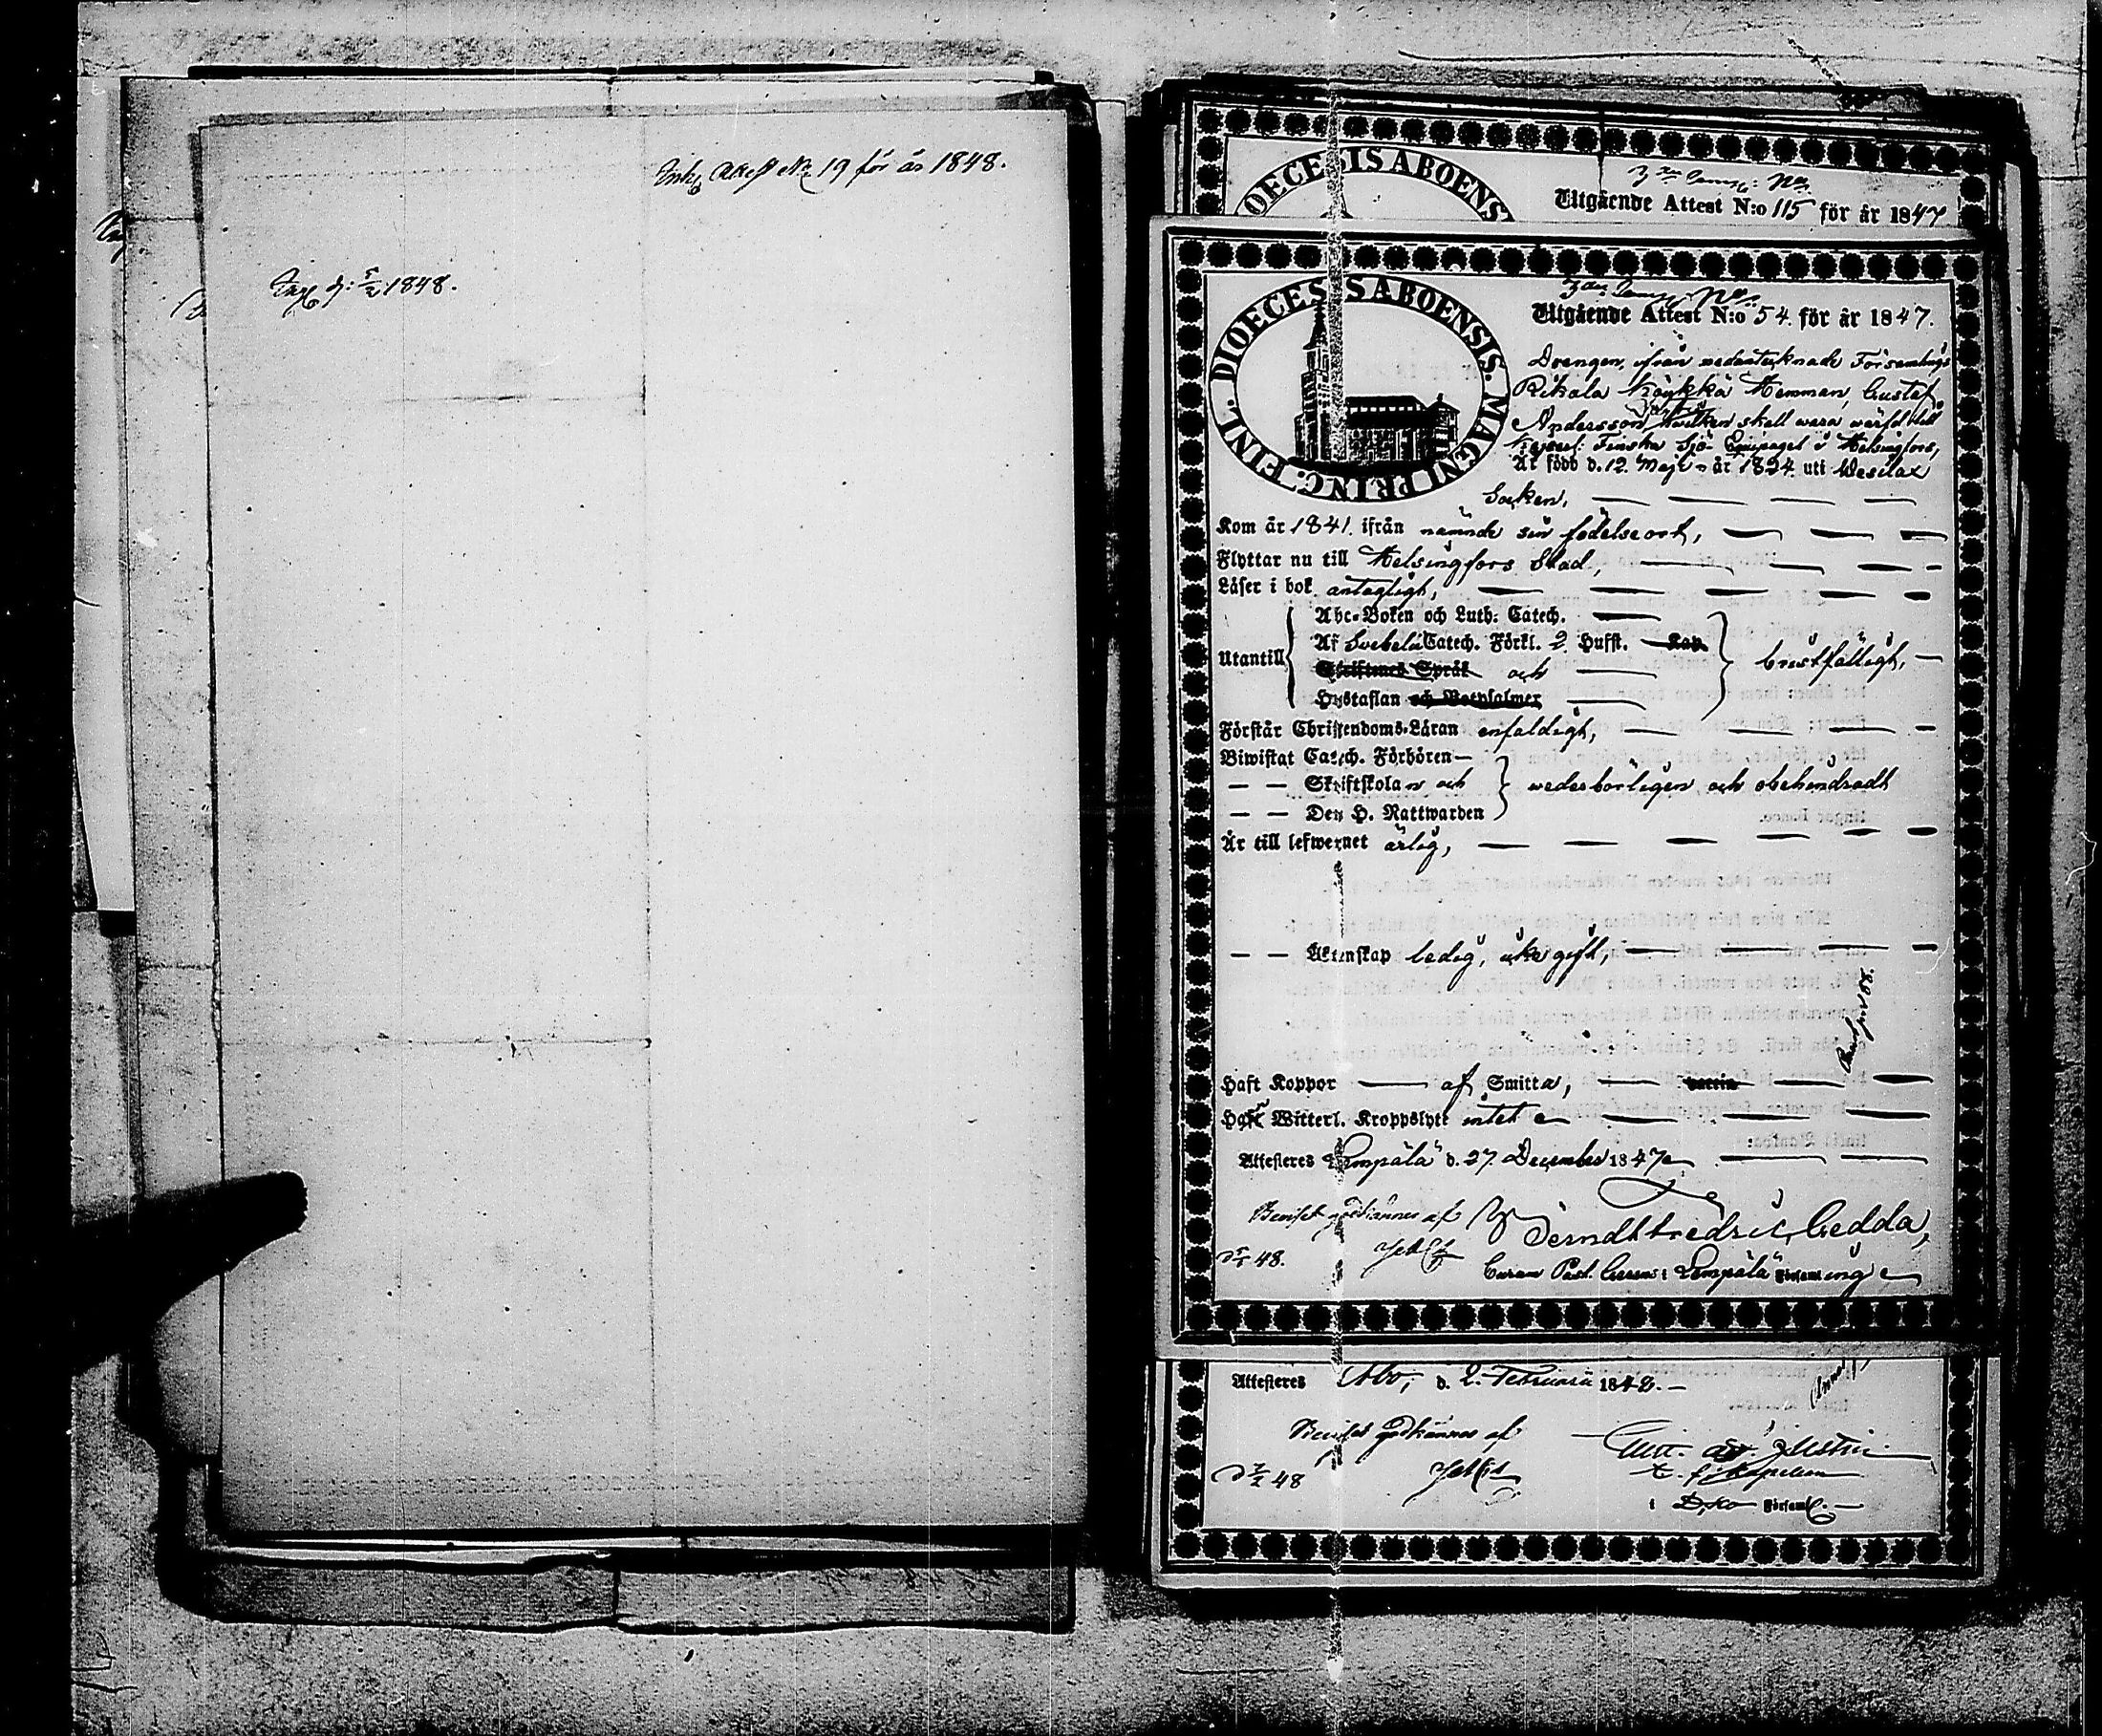 Attest No 19 för år 1848.
d: 5/2 1848.
DIOECESIS ABOENSIS
3dje Comp: No
Utgående Attest N:o 115 för år 1847
DIOECESIS ABOENSIS. MAGNI PRINC. FINL.
3dje Comp: No
Utgående Attest N:o 54. för år 1847.
Drengen, ifrån nedantecknade Församlings
Rikala Köykkä Hemman, Gustaf
Andersson, hvilken skall wara wärfd till
Kejserl: Finska Sjö Equipaget i Helsingfors,
Är född d. 12. Maji år 1824 uti Wesilax
Socken,
Kom år 1841. ifrån nämnde sin födelseort,
Flyttar nu till Helsingfors Stad,
Läser i bok antagligt,
Utantill
Abc-Boken och Luth: Catech.
Af Svebelii Catech. Förkl. 2 Hufst. Kap.
Skriftenes Språk och
Hustaflan och Botpsalmer
bristfälligt,
Förstår Christendoms-Läran enfaldigt,
Biwistat Catech. Förhören
— — Skriftskolan och
— — Den H. Nattwarden
wederbörligen och obehindradt
Är till lefwernet ärlig,
— — Äktenskap ledig, icke gift,
Haft Koppor — af Smitta, vaccin
Haft Witterl. Kroppslyte intet
Attesteras Lempälä d. 27. December 1847
Beviset godkännes af
d 5/1 48.
Berndt Fredric Gedda,
Curam Past. Gerens i Lempälä Församling
Attesteras Åbo, d. 2. Februarii 1848.
Beviset godkännes af
d 7/2 48
i Församl.